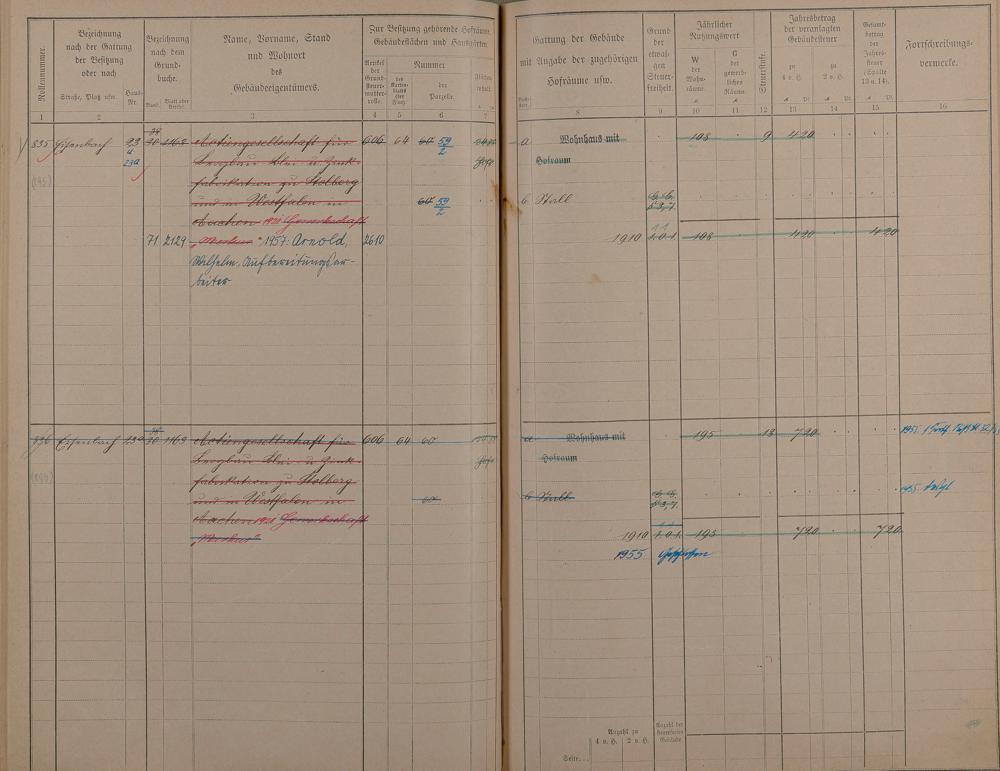 Rollennummer.
Bezeichnung
nach der Gattung
der Besitzung
oder nach
Straße, Platz usw.
Haus-
Nr.
Bezeichnung
nach dem
Grund-
buche.
Band.
Blatt oder
Artikel.
Name, Vorname, Stand
und Wohnort
des
Gebäudeeigentümers.
Zur Besitzung gehörende Hofräume,
Gebäudeflächen und Hausgärten.
Artikel
der
Grund-
steuer-
mutter-
rolle.
Nummer
des
Karten-
blattes
(der
Flur).
der
Parzelle.
Flächen-
inhalt.
1 2 3 4 5 6 7
835 Eisenbach 23 30 1163 Actiengesellschaft für 606 64 60 59/2
u
23a
Bergbau Blei- u Zink-
fabrikation zu Stolberg
und in Westfalen in 60 59/2
Aachen 1921 Gewerkschaft
71 2129 „Merkur" 1957: Arnold, 2610
Wilhelm, Aufbereitungsar-
beiter
836 Eisenbach 23a 30 1163 Actiengesellschaft für 606 64 60
Bergbau Blei- u Zink-
fabrikation zu Stolberg
und in Westfalen in 60
Aachen 1921 Gewerkschaft
„Merkur"
Gattung der Gebäude
mit Angabe der zugehörigen
Hofräume usw.
Grund
der
etwai-
gen
Steuer-
freiheit.
Jährlicher
Nutzungswert
W
der
Wohn-
räume.
G
der
gewerb-
lichen
Räume.
Steuerstufe.
Jahresbetrag
der veranlagten
Gebäudesteuer
zu
4 v. H.
zu
2 v. H.
Gesamt-
betrag
der
Jahres-
steuer
(Spalte
13 u. 14).
Fortschreibungs-
vermerke.
8 9 10 11 12 13 14 15 16
a Wohnhaus mit 108 9 4 20
Hofraum
b Stall
1910 1.0.1. 108 4 20 4 20
a Wohnhaus mit 195 13 7 20
Hofraum
b Stall
1910 1.0.1. 195 7 20 7 20
1955
Anzahl zu
4 v. H. 2 v. H.
Anzahl der
steuerfreien
Gebäude
Seite